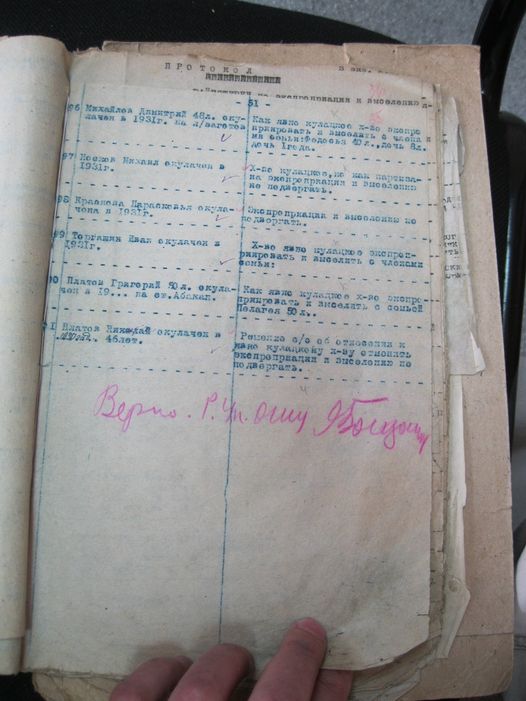 ПРОТОКОЛ
- 51 -
96 Михайлов Димитрий 48л. оку-
лачен в 1931г. на л/заготов
Как явно кулацкое х-во экспро
приировать и выселить с члена
ми семьи: Федосья 40л., дочь 8л.
дочь 1года.
97 Носков Михаил окулачен в
1931г.
Х-во кулацкое, но как партиза-
на экспроприации и выселению
не подвергать.
98 Краснова Парасковья окула-
чена в 1931г.
Экспроприации и выселению не
подвергать.
99 Торгашин Иван окулачен в
1931г.
Х-во явно кулацкое экспроп-
риировать и выселить с членами
семьи:
00 Платов Григорий 50л. окула-
чен в 19... на ст. Абакан.
Как явно кулацкое х-во экспро-
приировать и выселить с семьей
Пелагея 50л..
1 Платов Николай окулачен в
46лет.
Решение с/с об отнесении к
явно кулацкому х-ву отменить
экспроприации и выселению не
подвергать.
Верно.